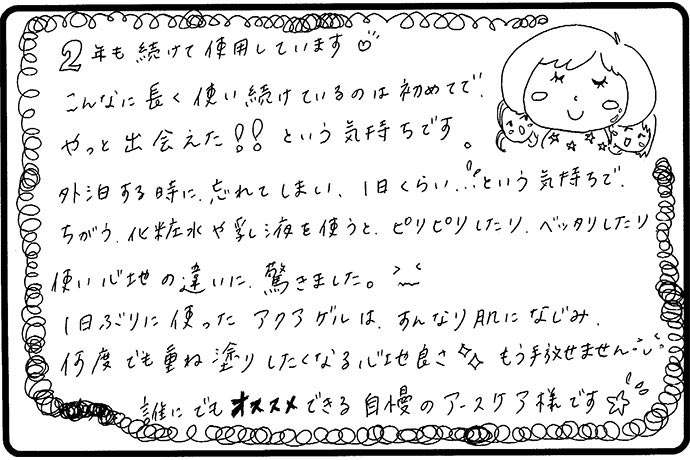 2年も続けて使用しています♡
こんなに長く使い続けているのは初めてで、
やっと出会えた!!という気持ちです。
外泊する時に、忘れてしまい、1日くらい…という気持ちで、
ちがう、化粧水や乳液を使うと、ピリピリしたり、ベッタリしたり
使い心地の違いに、驚きました。
1日ぶりに使ったアクアゲルは、すんなり肌になじみ、
何度でも重ね塗りしたくなる心地良さ✧ もう手放せません
誰にでもオススメできる自慢のアースケア様です☆